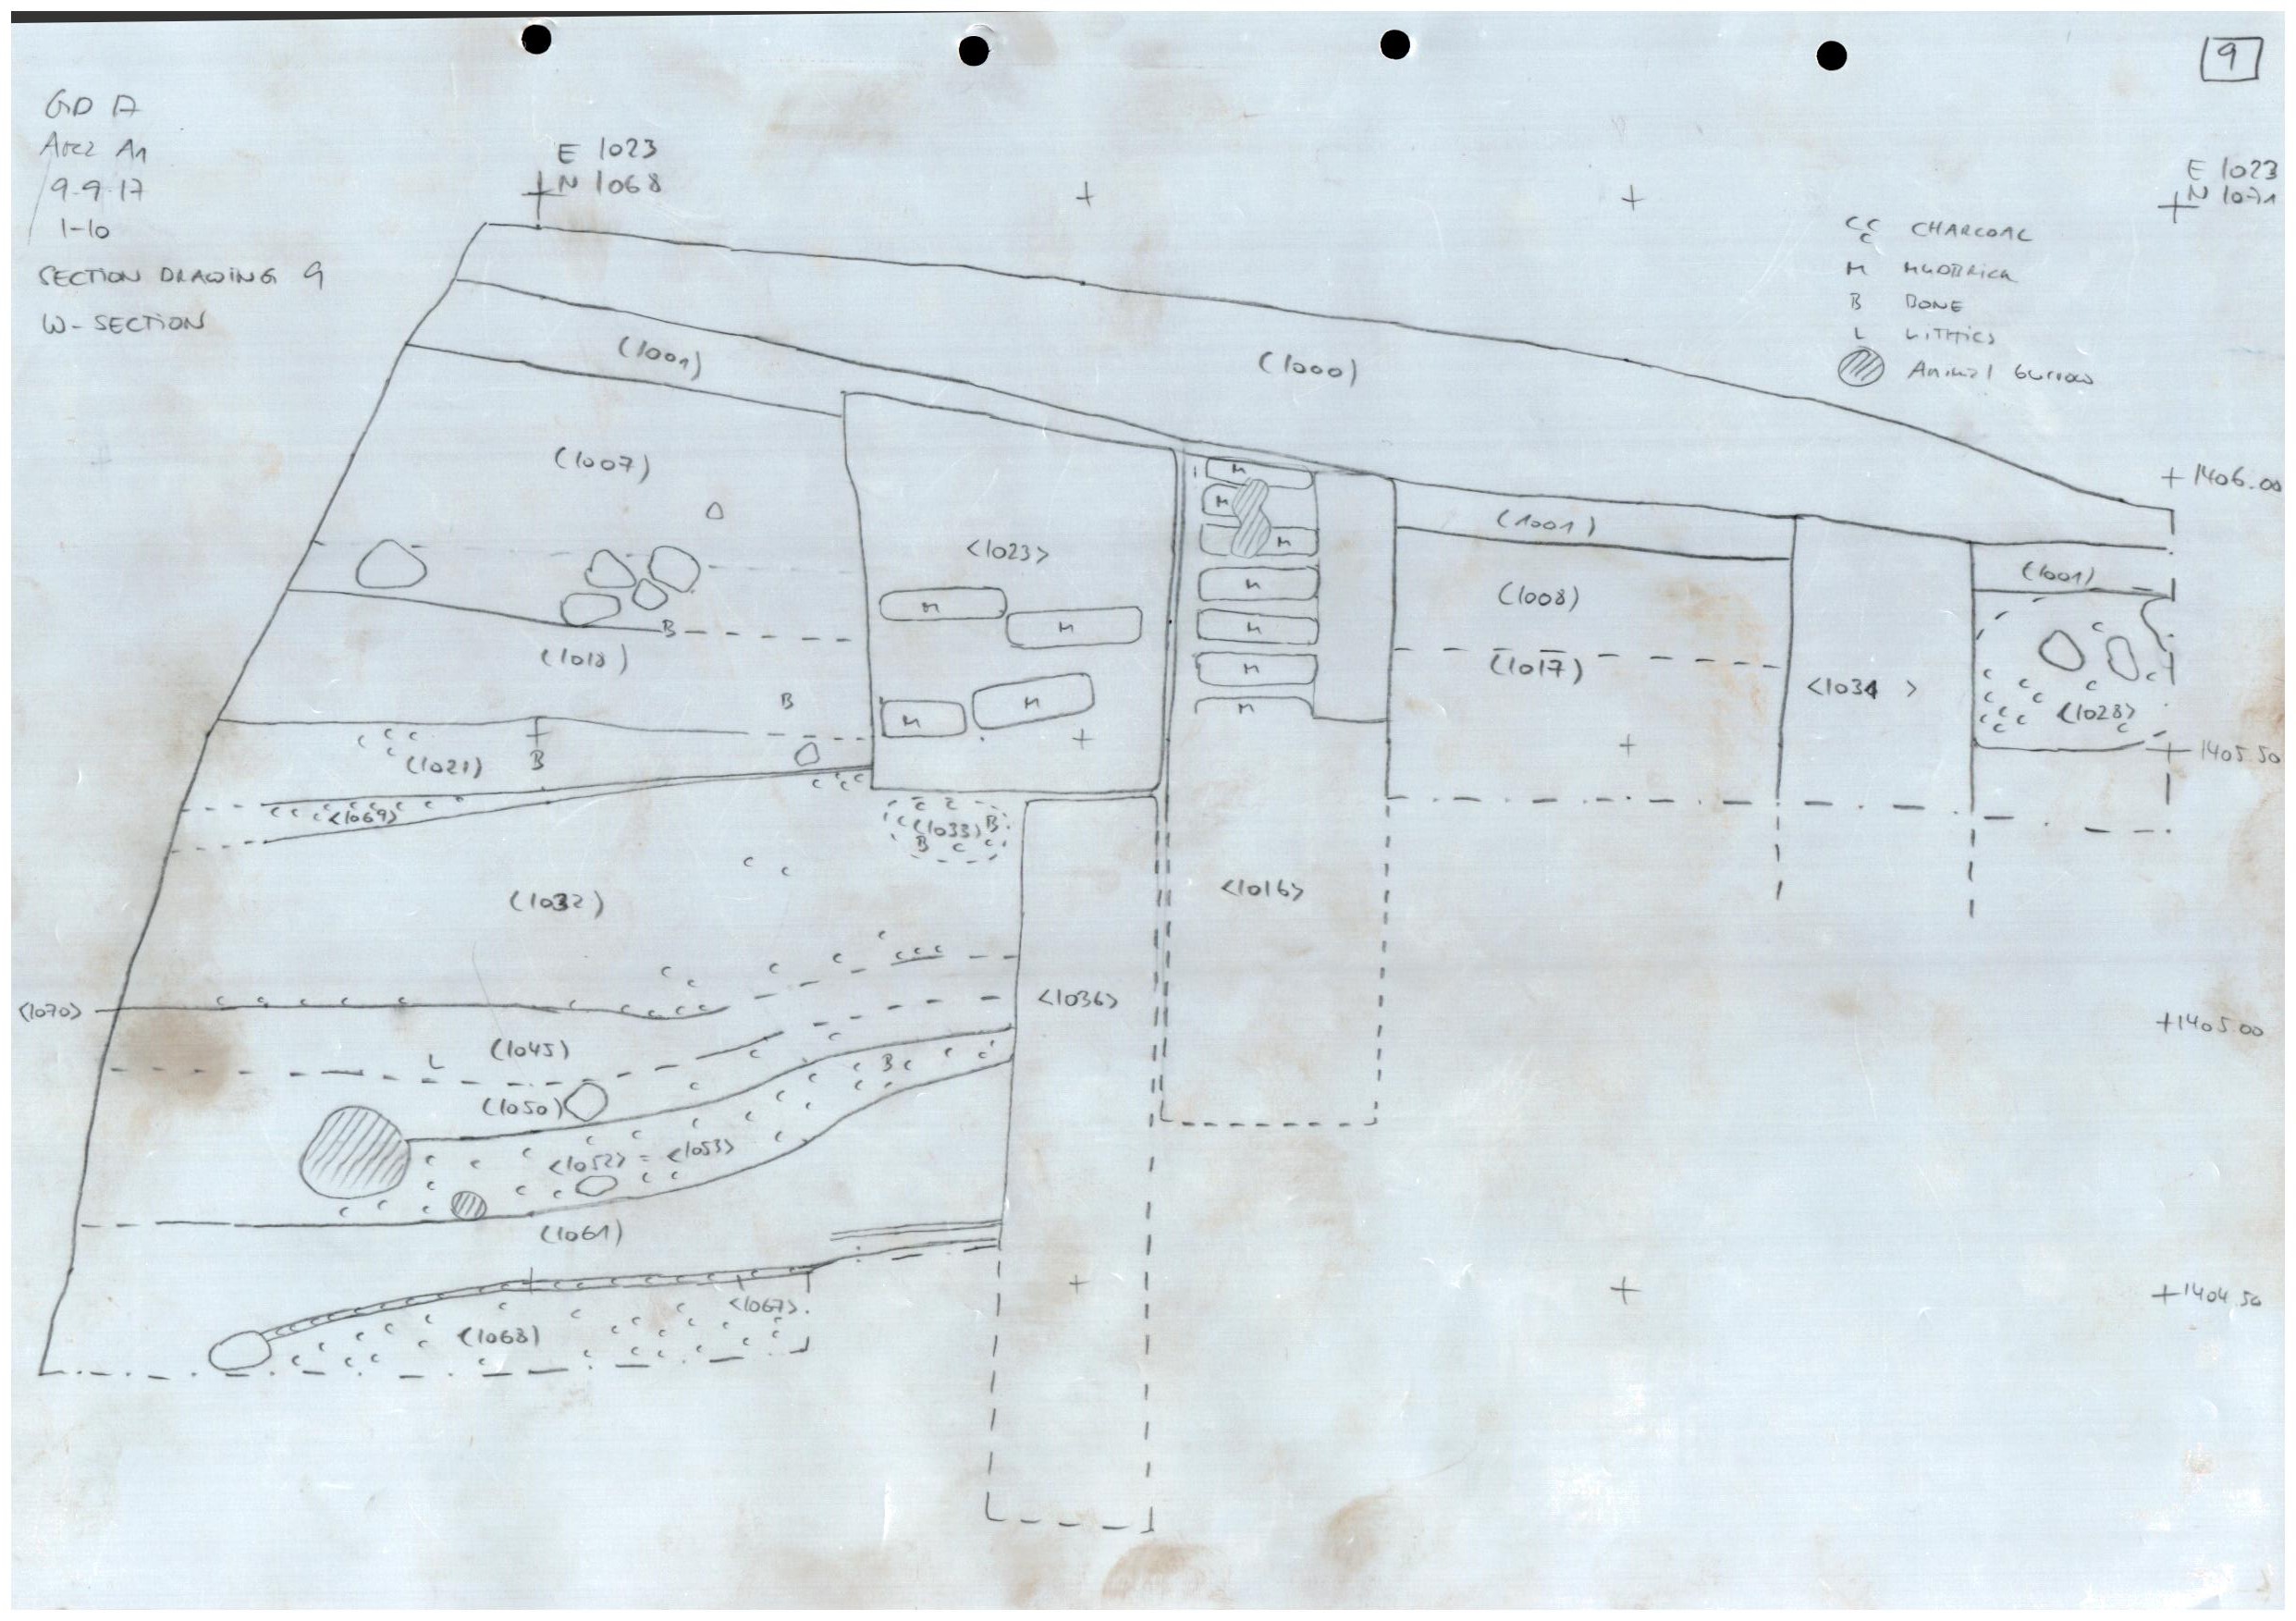 9
GD A
Area A1
9-9-17
1-10
SECTION DRAWING 9
W-SECTION
E 1023
N 1068
E 1023
N 1071
CC C CHARCOAL
M MUDBRICK
B BONE
L LITHICS
Animal burrow
(1001)
(1000)
(1007)
+ 1406.00
<1023>
(1001)
(1001)
M
M
M
M
M
M
M
M
M
M
M
(1008)
B
(1018)
(1017)
<1034>
<1028>
B
(1021)
B
+ 1405.50
<1069>
(1033)
B
B
<1016>
(1032)
<1070>
<1036>
+1405.00
(1045)
L
B
(1050)
<1052> = <1053>
(1061)
<1067>
+1404.50
(1068)